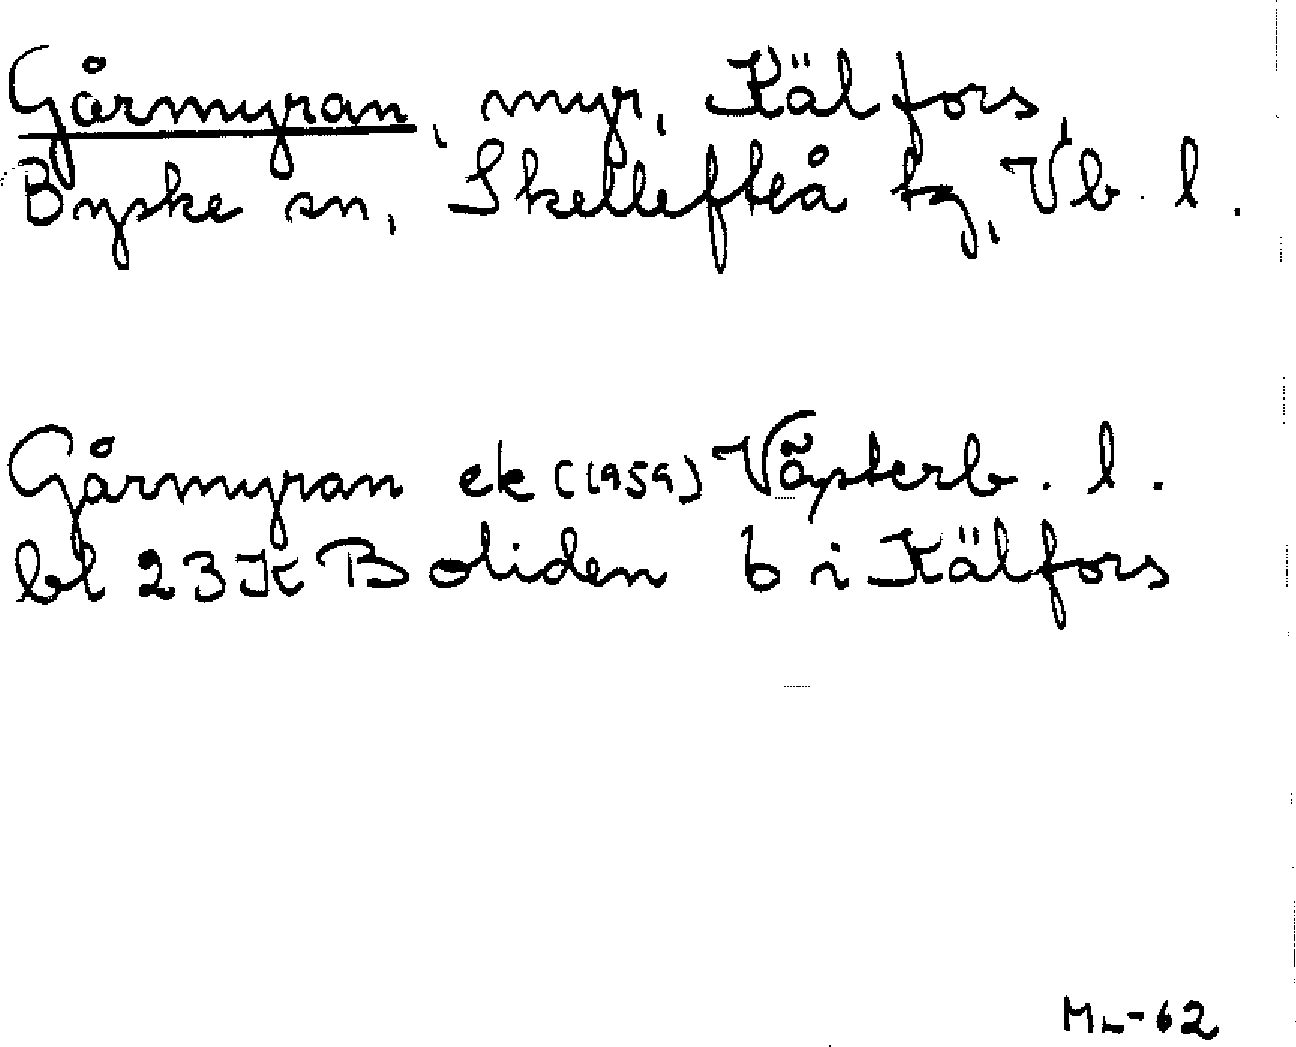 Gårmyran, myr, Kälfors,
Byske sn, Skellefteå tg, Vb. l.
Gårmyran ek (1959) Västerb. l.
bl 23K Boliden b i Kälfors
ML-62